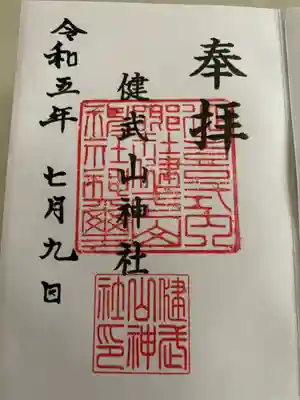 奉拝
健武山神社
令和五年 七月九日
健武
山神
社印